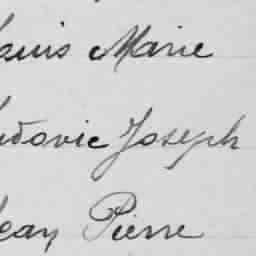 Louis Marie
Ludovic Joseph
Jean Pierre